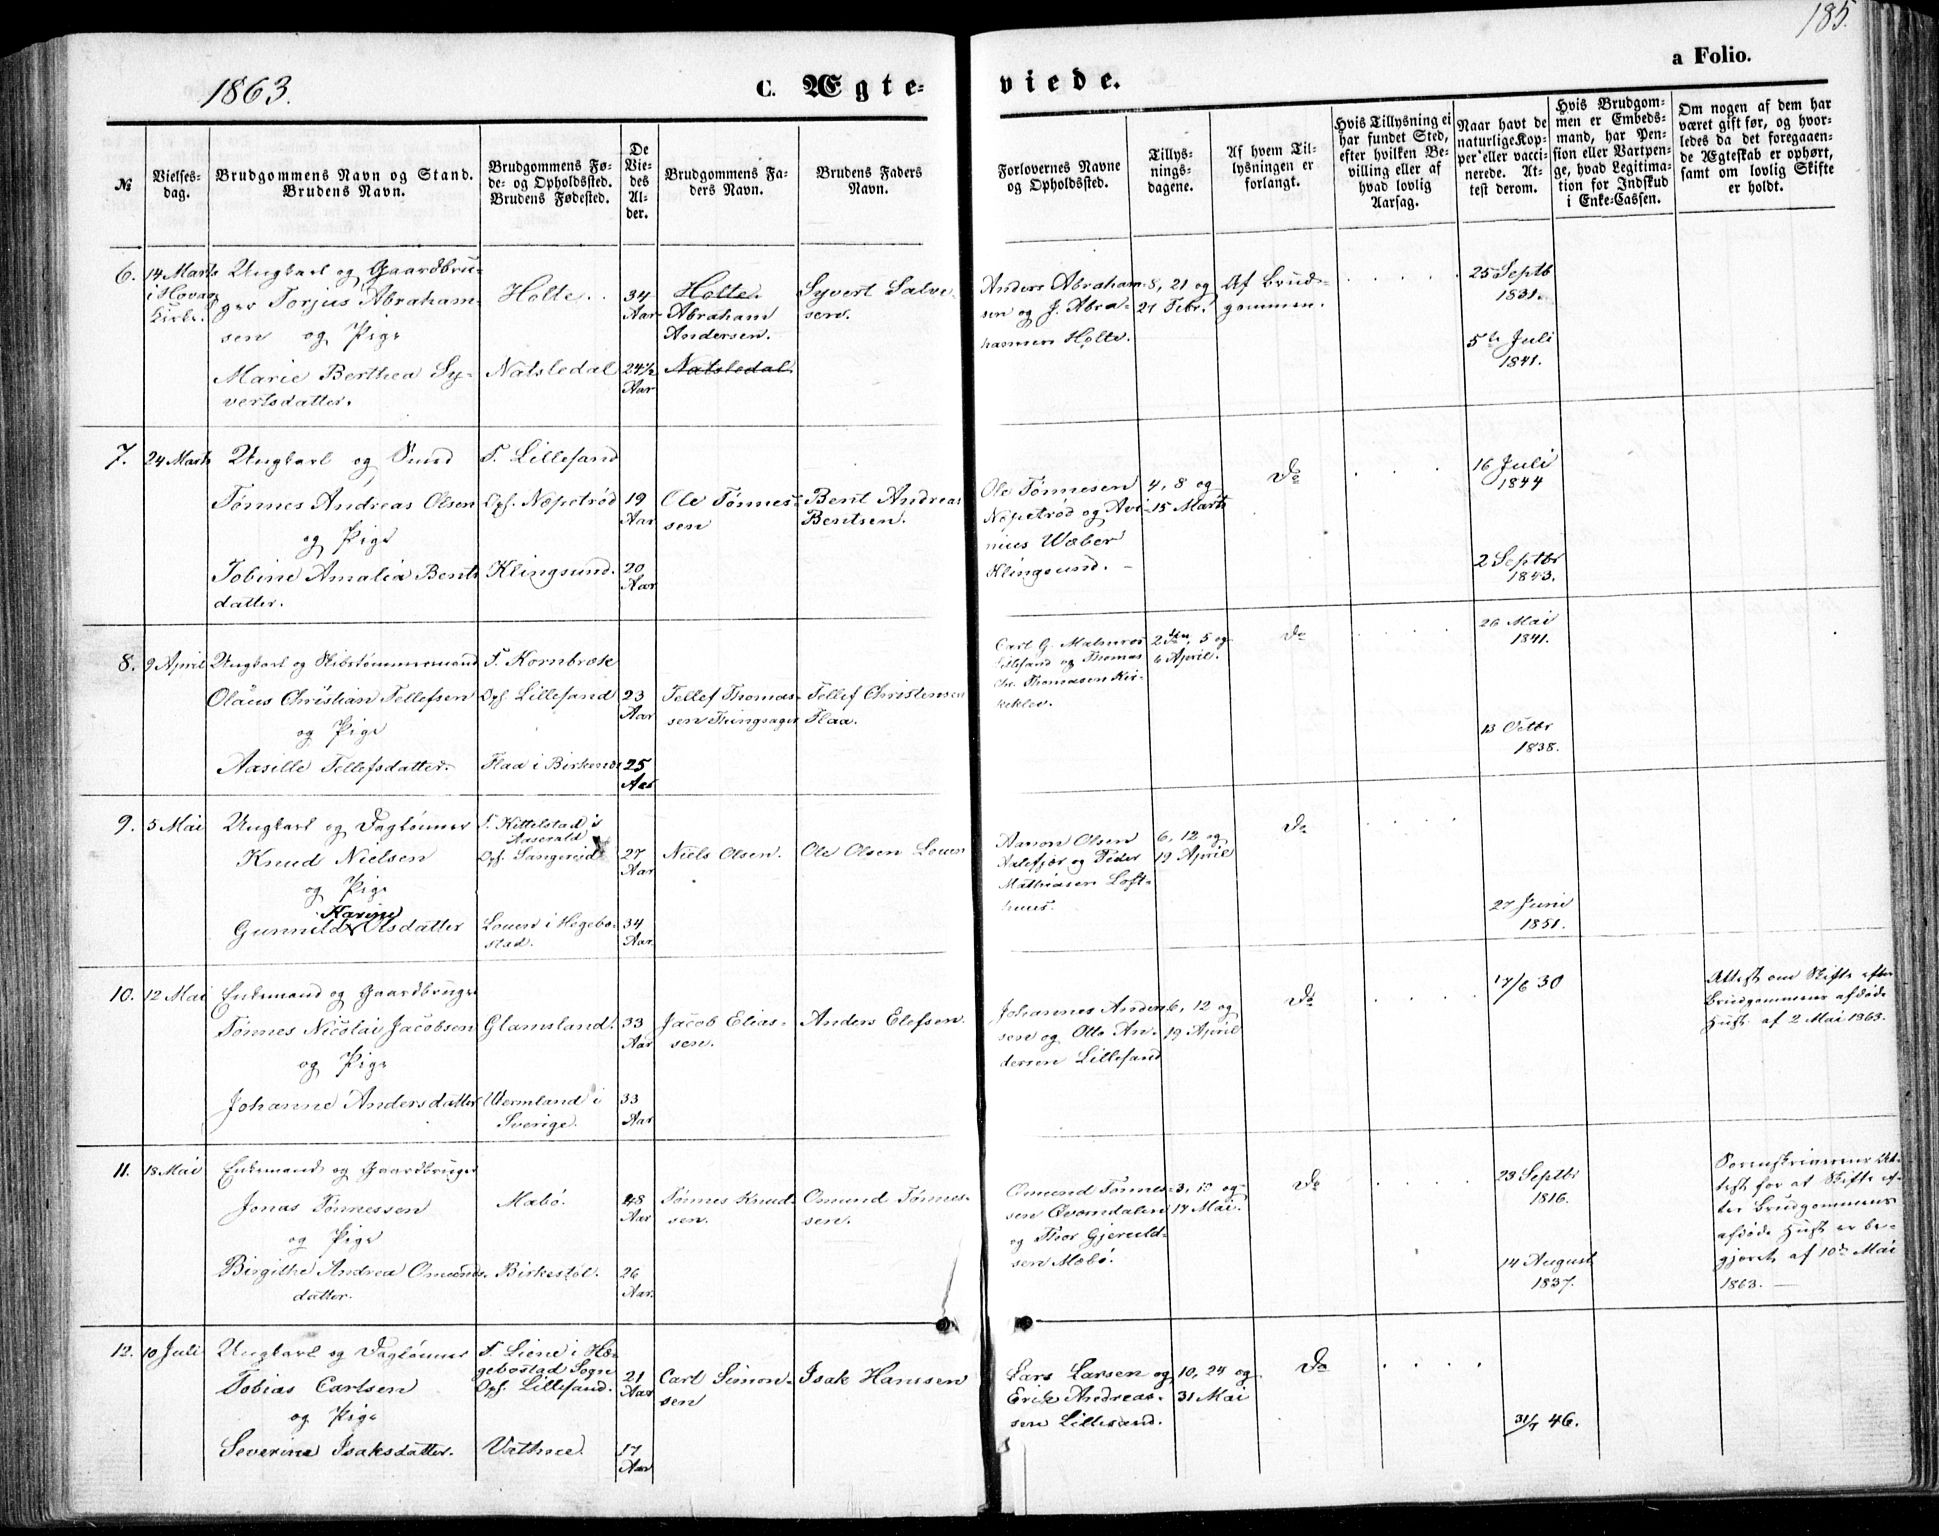 1863.
C. Ægte-
viede.
a Folio.
185.
№
Vielses-
dag.
Brudgommens Navn og Stand.
Brudens Navn.
Brudgommens Fø-
de- og Opholdssted.
Brudens Fødested.
De
Vie-
des
Al-
der.
Brudgommens Fa-
ders Navn.
Brudens Faders
Navn.
Forlovernes Navne
og Opholdssted.
Tillys-
nings-
dagene.
Af hvem Til-
lysningen er
forlangt.
Hvis Tillysning ei
har fundet Sted,
efter hvilken Be-
villing eller af
hvad lovlig
Aarsag.
Naar havt de
naturlige Kop-
per eller vacci-
nerede. At-
test derom.
Hvis Brudgom-
men er Embeds-
mand, har Pen-
sion eller Vartpen-
ge, hvad Legitima-
tion for Indskud
i Enke-Cassen.
Om nogen af dem har
været gift før, og hvor-
ledes da det foregaaen-
de Ægteskab er ophørt,
samt om lovlig Skifte
er holdt.
6.
14 Marts
i Høvåg
Kirke.
Ungkarl og Gaardbru-
ger Torjus Abraham-
sen og Pige
Marie Berthea Sy-
vertsdatter.
Holte.
Natsledal
34
Aar
24½
Aar
Holte.
Abraham
Andersen.
Natsledal.
Syvert Salve-
sen.
Anders Abraham-
sen og J. Abra-
hamsen Holte.
8, 21 og
21 Febr.
Af Brud-
gommen.
25 Septb
1831.
5te Juli
1841.
7.
24 Marts
Ungkarl og Smed
Tønnes Andreas Olsen
og Pige
Tobine Amalia Bents
datter.
F. Lillesand
Oph. Nøpetrød
Klingsund.
19
Aar
20
Aar
Ole Tønnes-
sen
Bent Andreas
Bentsen.
Ole Tønnesen
Nøpetrød og Avi-
nius Wæber
Klingsund.
4, 8 og
15 Marts
Do
16 Juli
1844
2 Septbr
1843.
8.
9 April
Ungkarl og Skibstømmermand
Olaus Christian Tellefsen
og Pige
Aasille Tellefsdatter.
F. Kornbrække
Oph. Lillesand
Flaa i Birkenes
23
Aar
25
Aar
Tellef Thomas-
sen Thingsager
Tellef Christensen
Flaa.
Carl G. Malmros
Lillesand og Thomas
Chr. Thomassen Kir-
keklev.
2den, 5 og
6 April.
Do
26 Mai
1841.
13 Octbr
1838.
9.
5 Mai
Ungkarl og Daglønner
Knud Nielsen
og Pige
Karine
Gunnild Olsdatter
F. Kittelstad i
Aaserald
Oph. Sangereid
Louen i Hegebo-
stad.
27
Aar
34
Aar.
Niels Olsen.
Ole Olsen Louen
Aanon Olsen
Aalefjær og Peder
Mathiasen Loft-
huus.
6, 12 og
19 April
Do
27 Juni
1851.
10.
12 Mai
Enkemand og Gaardbruger
Tønnes Nicolai Jacobsen
og Pige
Johanne Andersdatter
Glamsland.
Wermland i
Sverige.
33
Aar
33
Aar
Jacob Elias-
sen.
Anders Elefsen.
Johannes Ander-
sen og Otto An-
dersen Lillesand
6, 12 og
19 April
Do
17/6 30
Attest om Skifte efter
Brudgommens afdøde
Hust. af 2 Mai 1863.
11.
18 Mai
Enkemand og Gaardbruger
Jonas Tønnessen
og Pige
Birgithe Andrea Omunds-
datter.
Mæbø.
Birkestøl.
48
Aar
26
Aar.
Tønnes Knud-
sen.
Omund Tønnes-
sen.
Omund Tønnes-
sen Qvorndalen
og Thor Gjeruld-
sen Mæbø.
3, 10 og
14 Mai.
Do
23 Septbr
1816.
14 August
1837.
Sorenskriverens At-
test for at Skifte ef-
ter Brudgommens
afdøde Hust. er be-
gjæret af 10de Mai
1863. —
12.
10 Juli
Ungkarl og Daglønner
Tobias Carlsen
og Pige
Severine Isaksdatter.
F. Liene i Hæ-
gebostad Sogn
Oph. Lillesand.
Vathne.
21
Aar
17
Aar
Carl Simon-
sen
Isak Hansen
Lars Larsen og
Erik Andreas-
sen Lillesand.
10, 24 og
31 Mai
Do
31/7 46.